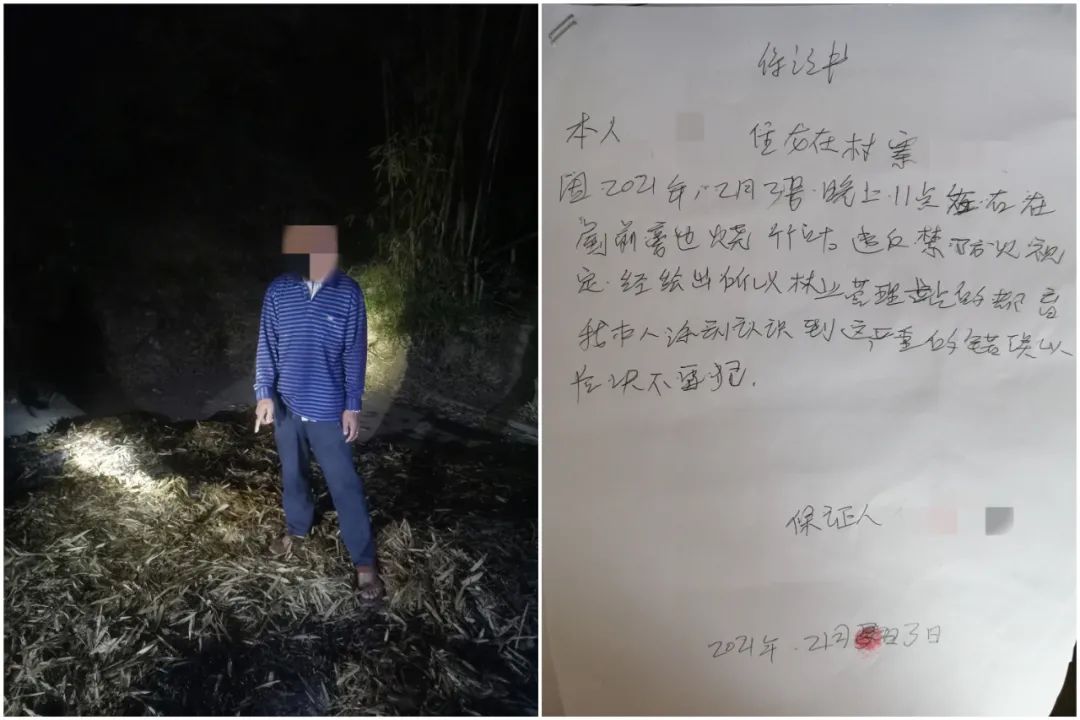 保证书
本人 住友在村寨
因2021年12月3号晚上11点左右在
家前旁边烧竹叶。违反禁防火规
定经派出所以林业管理站的教育
我本人深刻认识到这严重的错误以
后决不再犯.
保证人
2021年.21月3日